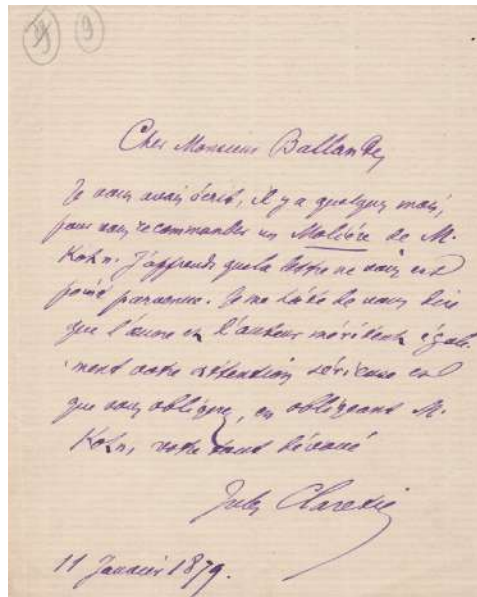 9
Cher Monsieur Ballande,
Je vous avais écrit, il y a quelques mois,
pour vous recommander un Molière de M.
Kohn. J'apprends que la lettre ne vous est
point parvenue. Je me hâte de vous dire
que l'œuvre et l'auteur méritent égale-
ment votre attention sérieuse et
que vous obligerez, en obligeant M.
Kohn, votre tout dévoué
Jules Claretie
11 Janvier 1879.